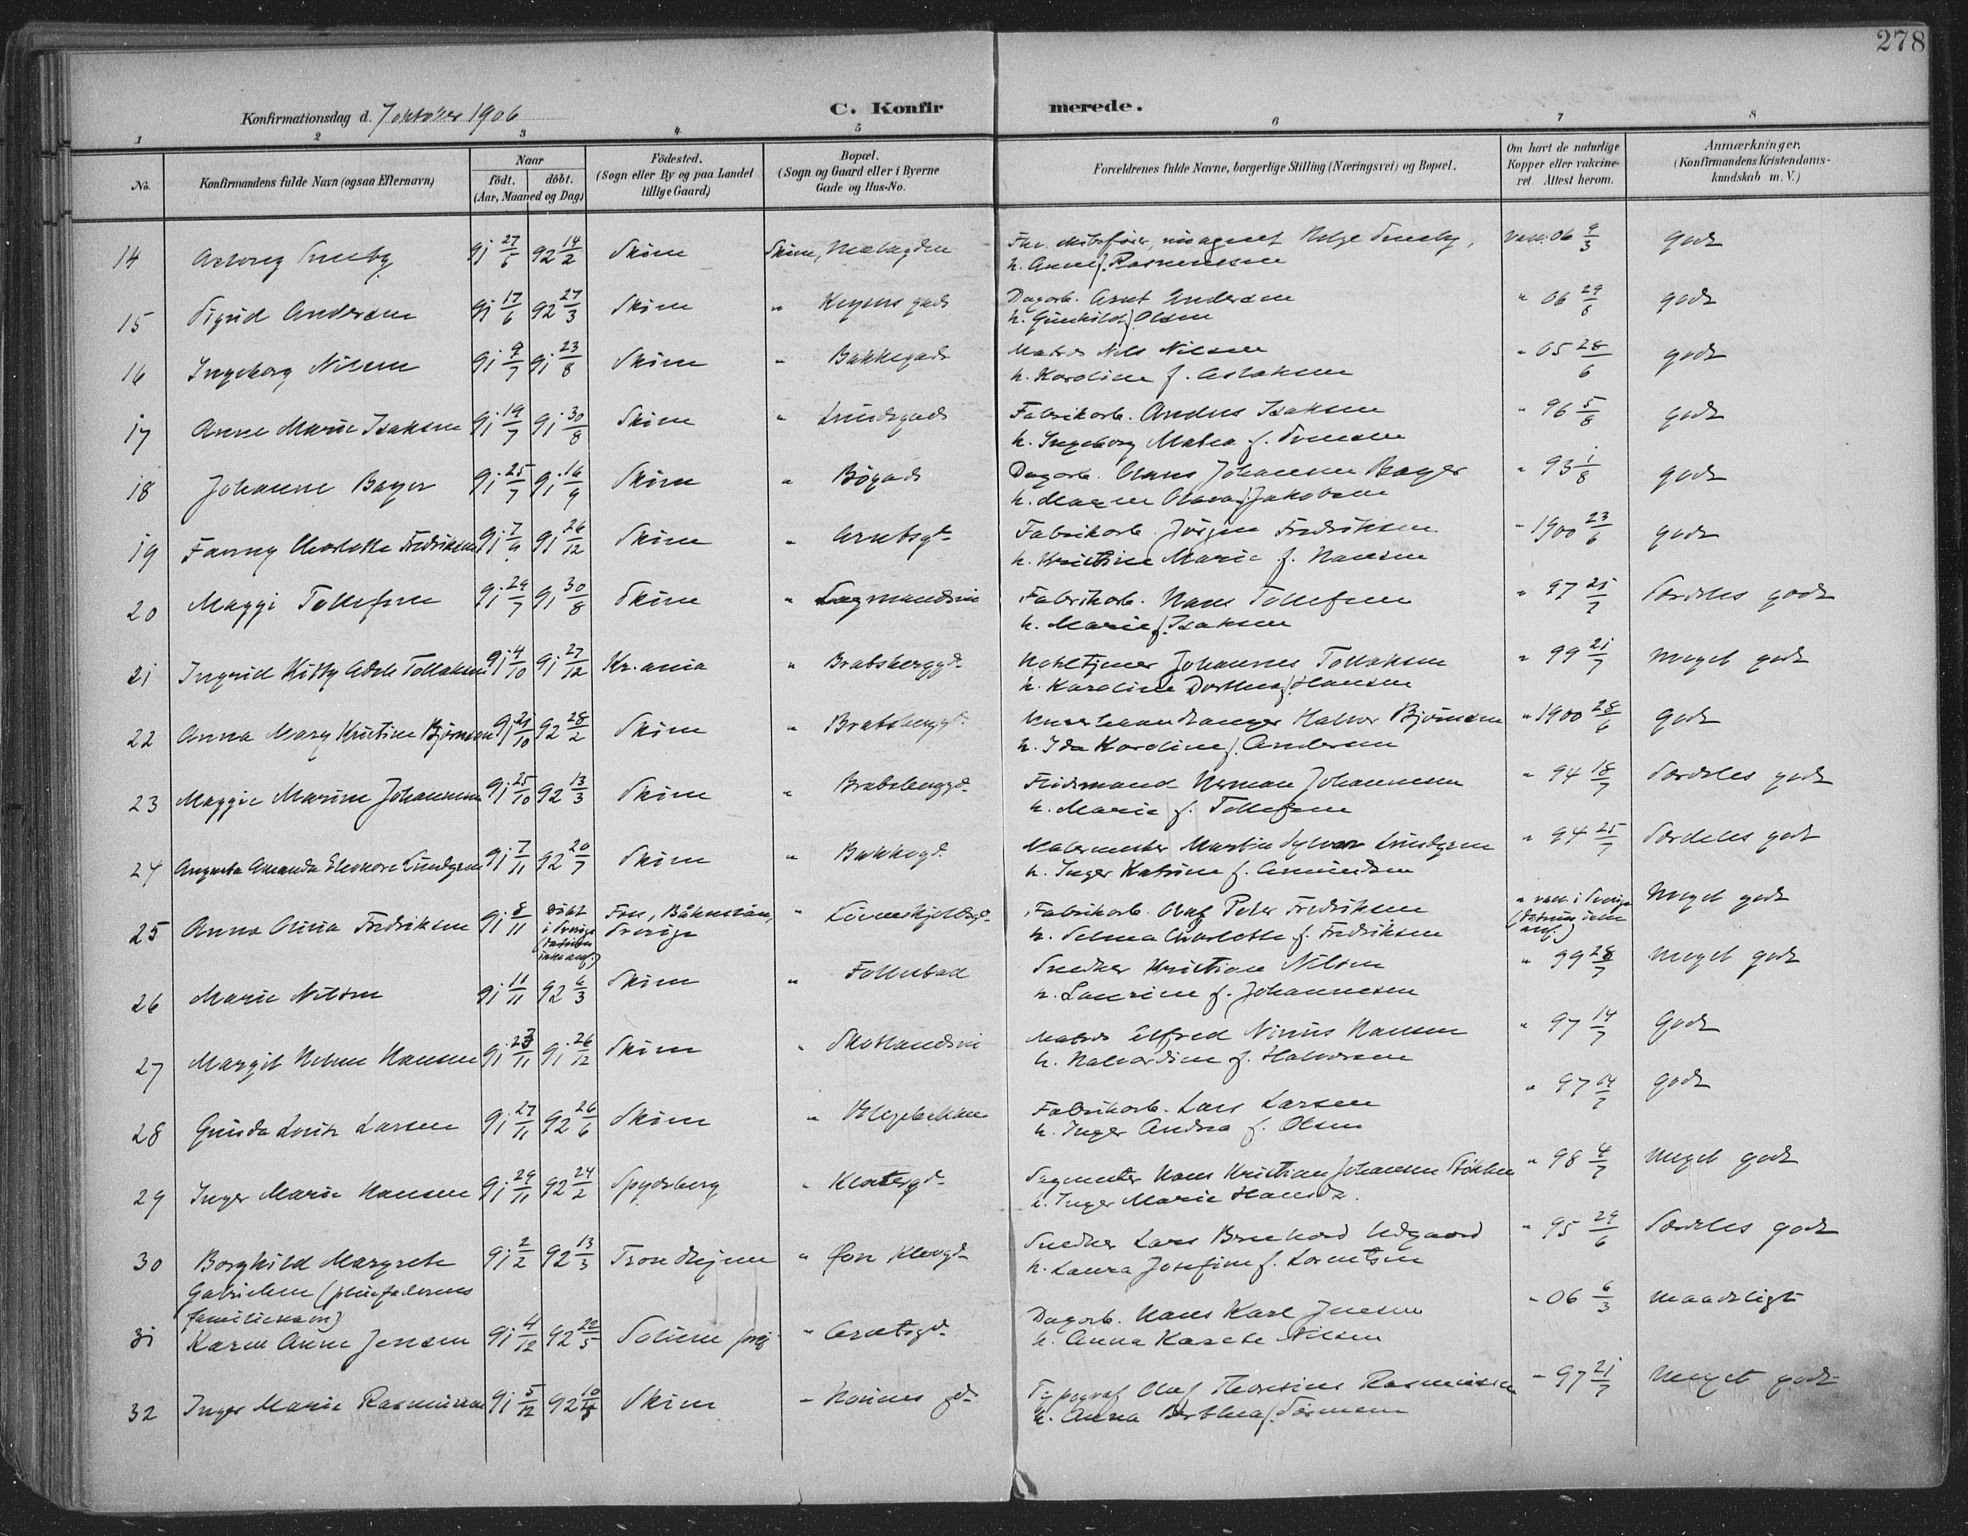 278
Konfirmationsdag d. 7 oktober 1906
C. Konfirmerede.
1 2 3 4 5 6 7 8
No. Konfirmandens fulde Navn (ogsaa Efternavn) Naar født. døbt. (Aar, Maaned og Dag) Fødested. (Sogn eller By og paa Landet tillige Gaard) Bopæl. (Sogn og Gaard eller i Byerne Gade og Hus-No. Forældrenes fulde Navne, borgerlige Stilling (Næringsvei) og Bopæl. Om havt de naturlige Kopper eller vakcineret. Attest herom. Anmærkninger. (Konfirmandens Kristendomskundskab m. V.)
14 91 27/5 92 14/2 Skien Skien, Helge
h. Anne f. Rasmussen 06 9/3 godt
15 Sigrid Andersen 91 17/6 92 27/3 Skien " gade Dagarb. Arnt Andersen
h. Gunhild f. Olsen " 06 29/8 godt
16 Ingeborg Nilsen 91 9/7 91 23/8 Skien " Bakkegade Matros Nils Nilsen
h. Karoline f. Aslaksen " 05 28/6 godt
17 Anne Marie Isaksen 91 19/7 91 30/8 Skien " Lundegade Fabrikarb. Anders Isaksen
h. Ingeborg Matea f. Svendsen " 96 5/8 godt
18 Johanne Bayer 91 25/7 91 16/9 Skien " Bøgade Dagarb. Johansen Bayer
h. Maren f. Jakobsen " 93 1/8 godt
19 Fanny Charlotte Fredriksen 91 7/9 91 26/12 Skien " Arntsgd. Fabrikarb. Jørgen Fredriksen
h. Kristine Marie f. Hansen " 1900 23/6 godt
20 Maggi Tollefsen 91 29/7 91 30/8 Skien " Fabrikarb. Hans Tollefsen
h. Marie f. Isaksen " 97 21/7 Særdeles godt
21 Ingrid Kitty Adele Tollaksen 91 4/10 91 27/12 Kr.ania " Bratsberggd. Johannes Tollaksen
h. Karoline Dorthea f. Hansen " 99 21/7 Meget godt
22 Anna Mary Kristine Bjørnsen 91 21/10 92 28/2 Skien " Bratsberggd. Halvor Bjørnsen
h. Ida Karoline f. Andersen " 1900 28/6 godt
23 Maggie Marine Johannesen 91 25/10 92 13/3 Skien " Bratsberggd. Herman Johannesen
h. Marie f. Tollefsen " 94 18/7 Særdeles godt
24 Augusta Amanda Eleonore Lundgren 91 7/11 92 20/7 Skien " Bakkegd. Malermester Martin Lundgren
h. Inger Katrine f. Amundsen " 94 25/7 Særdeles godt
25 Anna Fredriksen 91 8/11 døbt i Sverige (datum ikke anf.) Foss, Båhuslän, Sverige " Løvenskjoldsgd. Fabrikarb. Olaf Peter Fredriksen
h. Selma Charlotte f. Fredriksen " vacc. i Sverige (datum ikke anf.) Meget godt
26 Marie Nilsen 91 11/11 92 6/3 Skien " Follestad Snedker Kristian Nilsen
h. Laurine f. Johannesen " 99 28/7 Meget godt
27 Margit Helene Hansen 91 23/11 91 26/12 Skien " Matros Alfred Hansen
h. f. Halvorsen " 97 14/7 Godt
28 Gunda Larsen 91 27/11 92 26/6 Skien " Blegebakken Fabrikarb. Lars Larsen
h. Inger Andrea f. Olsen " 97 14/7 godt
29 Inger Marie Hansen 91 29/11 92 24/2 Spydeberg " Klostergd. Hans Kristian Johansen
h. Inger Marie " 98 4/7 Meget godt
30 Borghild Margrete
Gabrielsen (pleiefaderens
familienavn) 91 2/2 92 13/3 Trondhjem " Snedker Lars Bernhard
h. Laura Josefine f. Lorentsen " 95 29/6 Særdeles godt
31 Karen Anne Jensen 91 4/12 92 22/5 Solum " Arntsgd. Dagarb. Hans Karl Jensen
h. Anna Nilsen " 06 6/3 maadeligt
32 Inger Marie Rasmussen 91 5/12 92 10/3 Skien " gd. Typograf Olaf Rasmussen
h. Anna Berthea f. Sørensen " 97 21/7 Meget godt